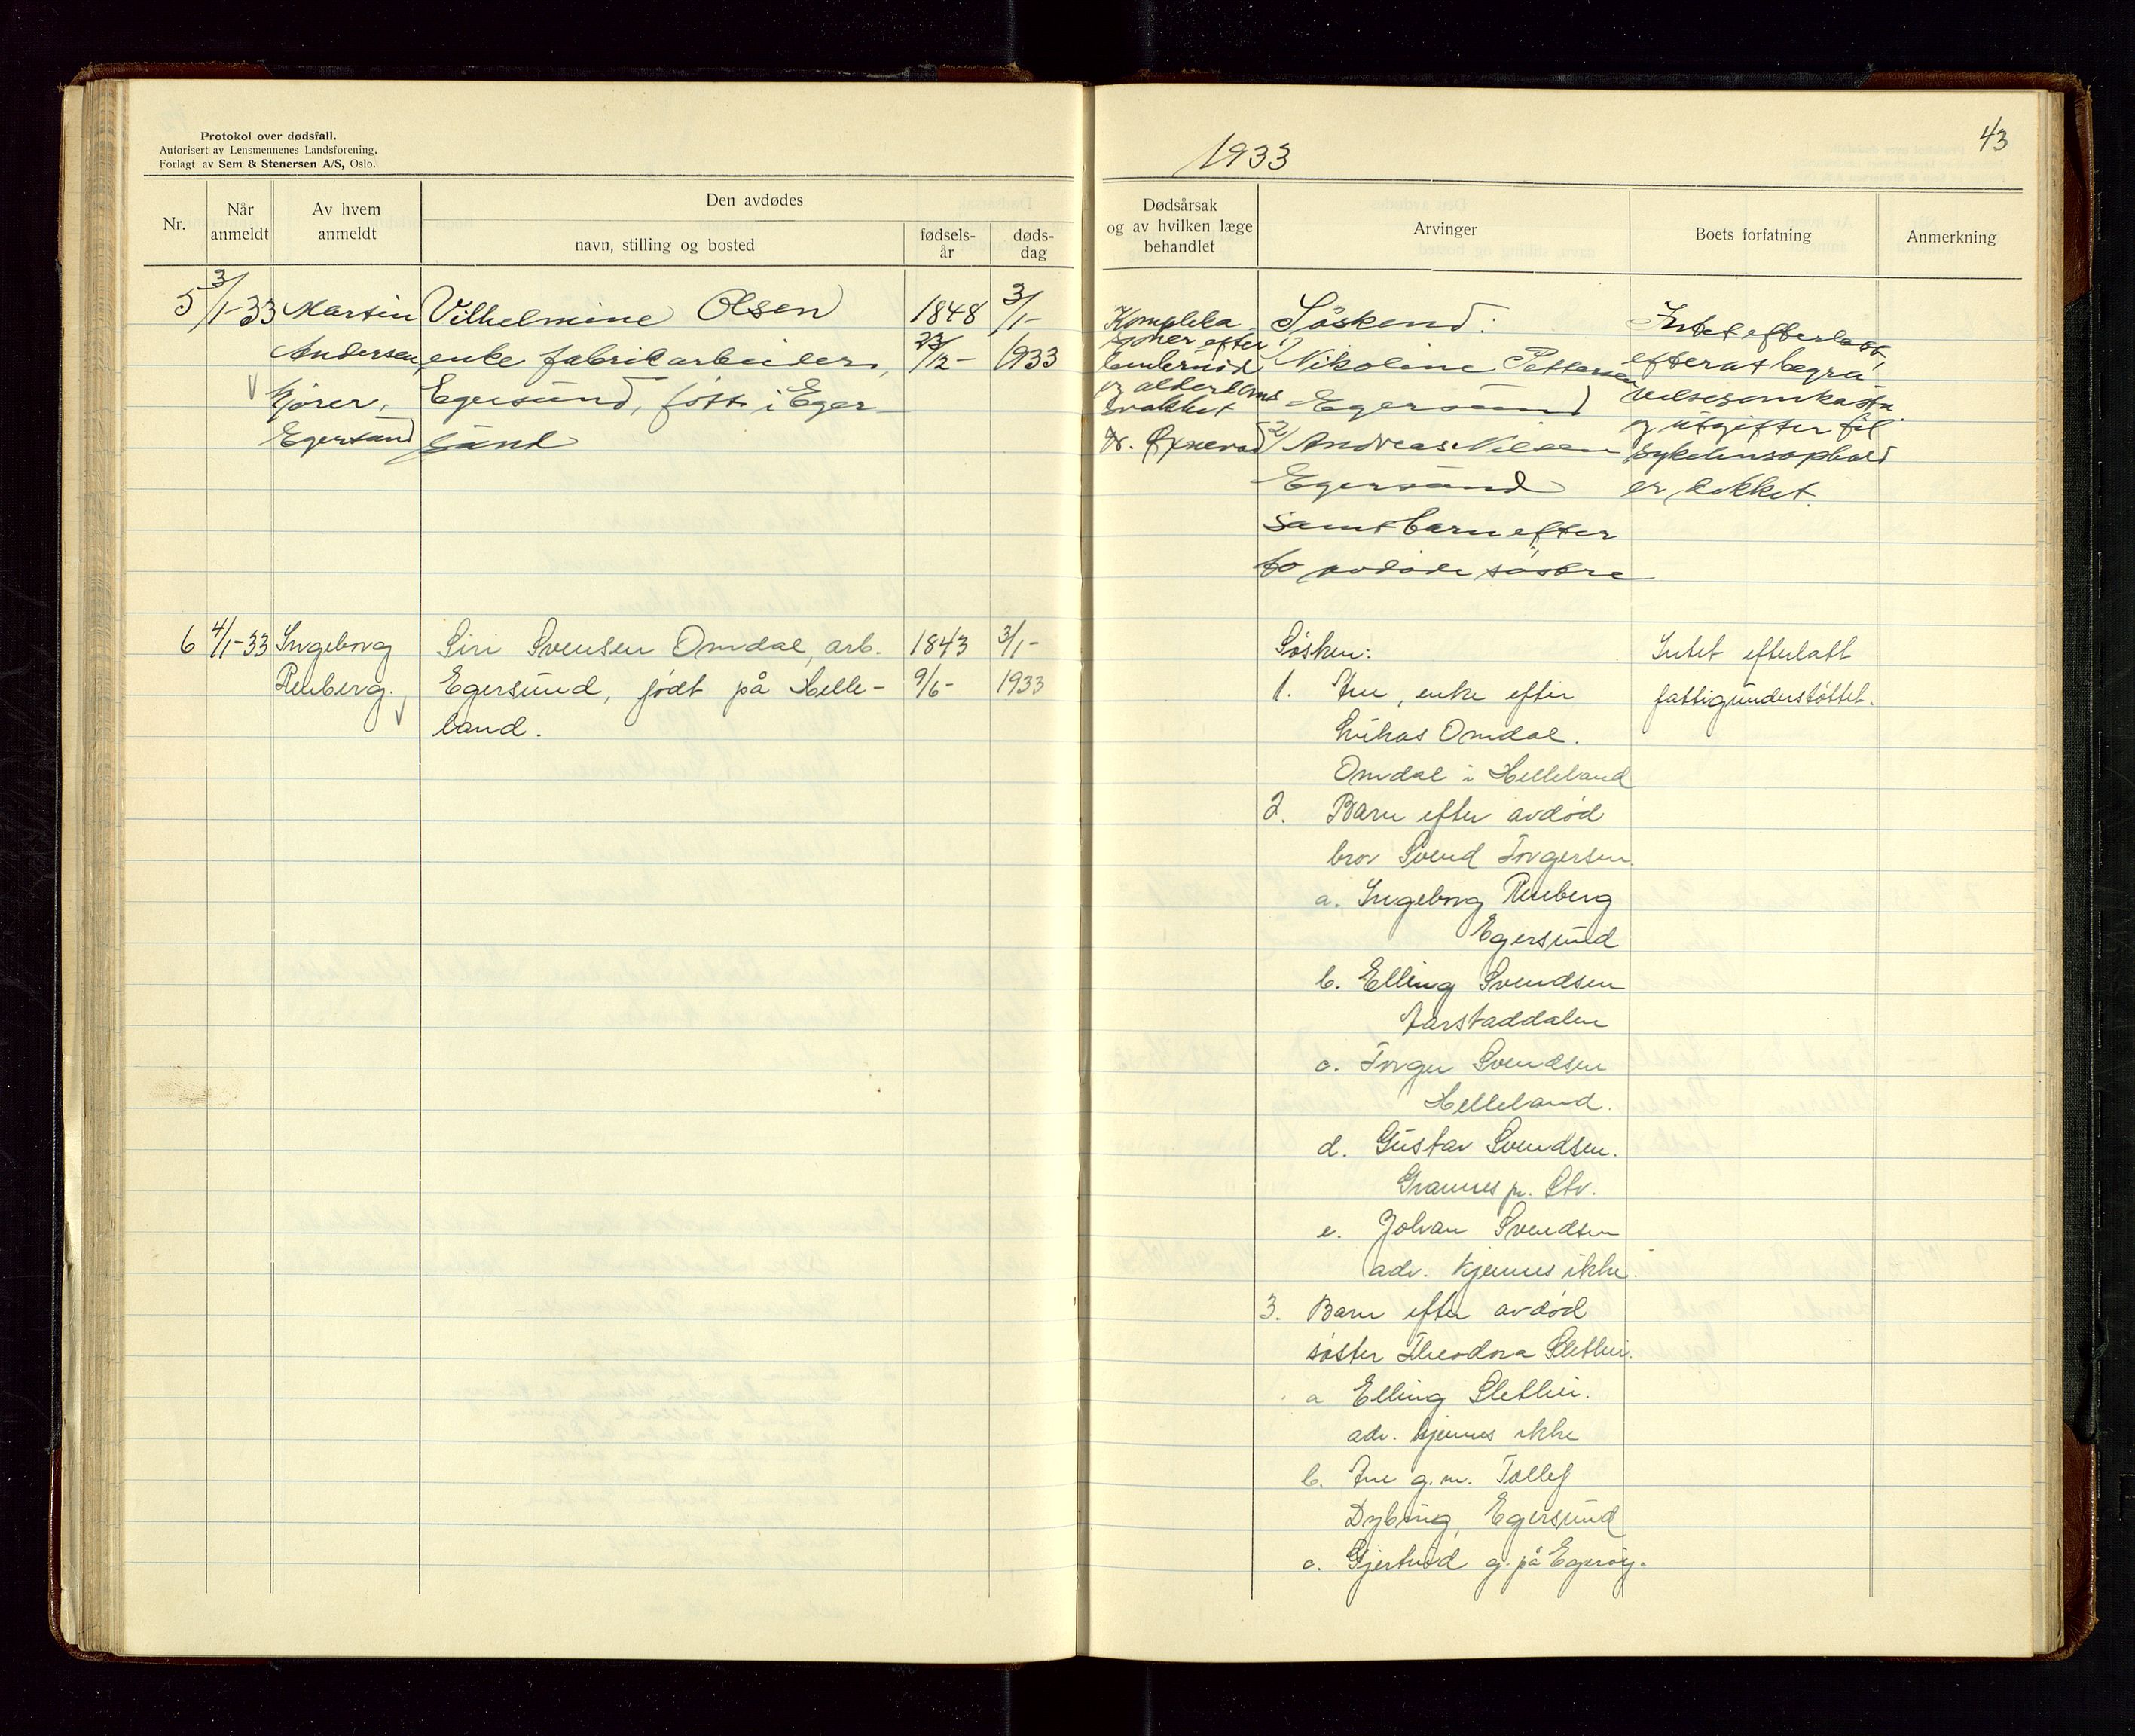 Protokol over dødsfall.
Autorisert av Lensmennenes Landsforening.
Forlagt av Sem & Stenersen A/S, Oslo.
1933
43
Nr.
Når anmeldt
Av hvem anmeldt
Den avdødes
navn, stilling og bosted
fødsels-år
døds-dag
Dødsårsak og av hvilken læge behandlet
Arvinger
Boets forfatning
Anmerkning
5
3/1-33
Martin
Andersen,
kjører,
Egersund
Vilhelmine Olsen
enke fabrikarbeider,
Egersund, født i Eger-
sund
1848
23/12-
3/1-
1933
Komplika-
sjoner efter
benbrudd
og alderdoms
svakhet
Søskend:
1/ Nikoline Pettersen
Egersund
2/ Andreas Nilsen
Egersund
samt barn efter
to avdøde søstre
Intet efterlatt,
efterat begra-
velsesomkostn.
og utgifter til
sykehusophold
er dekket.
6
4/1-33
Ingeborg
Renberg.
Siri Svensen Omdal, arb.
Egersund, født på Helle-
land.
1843
9/6-
3/1-
1933
Søsken:
1. Ane, enke efter
Lukas Omdal.
Omdal i Helleland
2. Barn efter avdød
bror Svend Torgersen.
a. Ingeborg Renberg
Egersund
b. Elling Svendsen
Aarstaddalen
c. Torger Svendsen
Helleland.
d. Gustav Svendsen.
Grannes pr. Stv.
e. Johan Svendsen
adr. kjennes ikke.
3. Barn efter avdød
søster Theodora Slethei.
a Elling Slethei.
adr. kjennes ikke
b. Ane g.m. Tollef
Dybing, Egersund
c. Gjertrud g. på Egerøy.
Intet efterlatt
fattigunderstøttet.